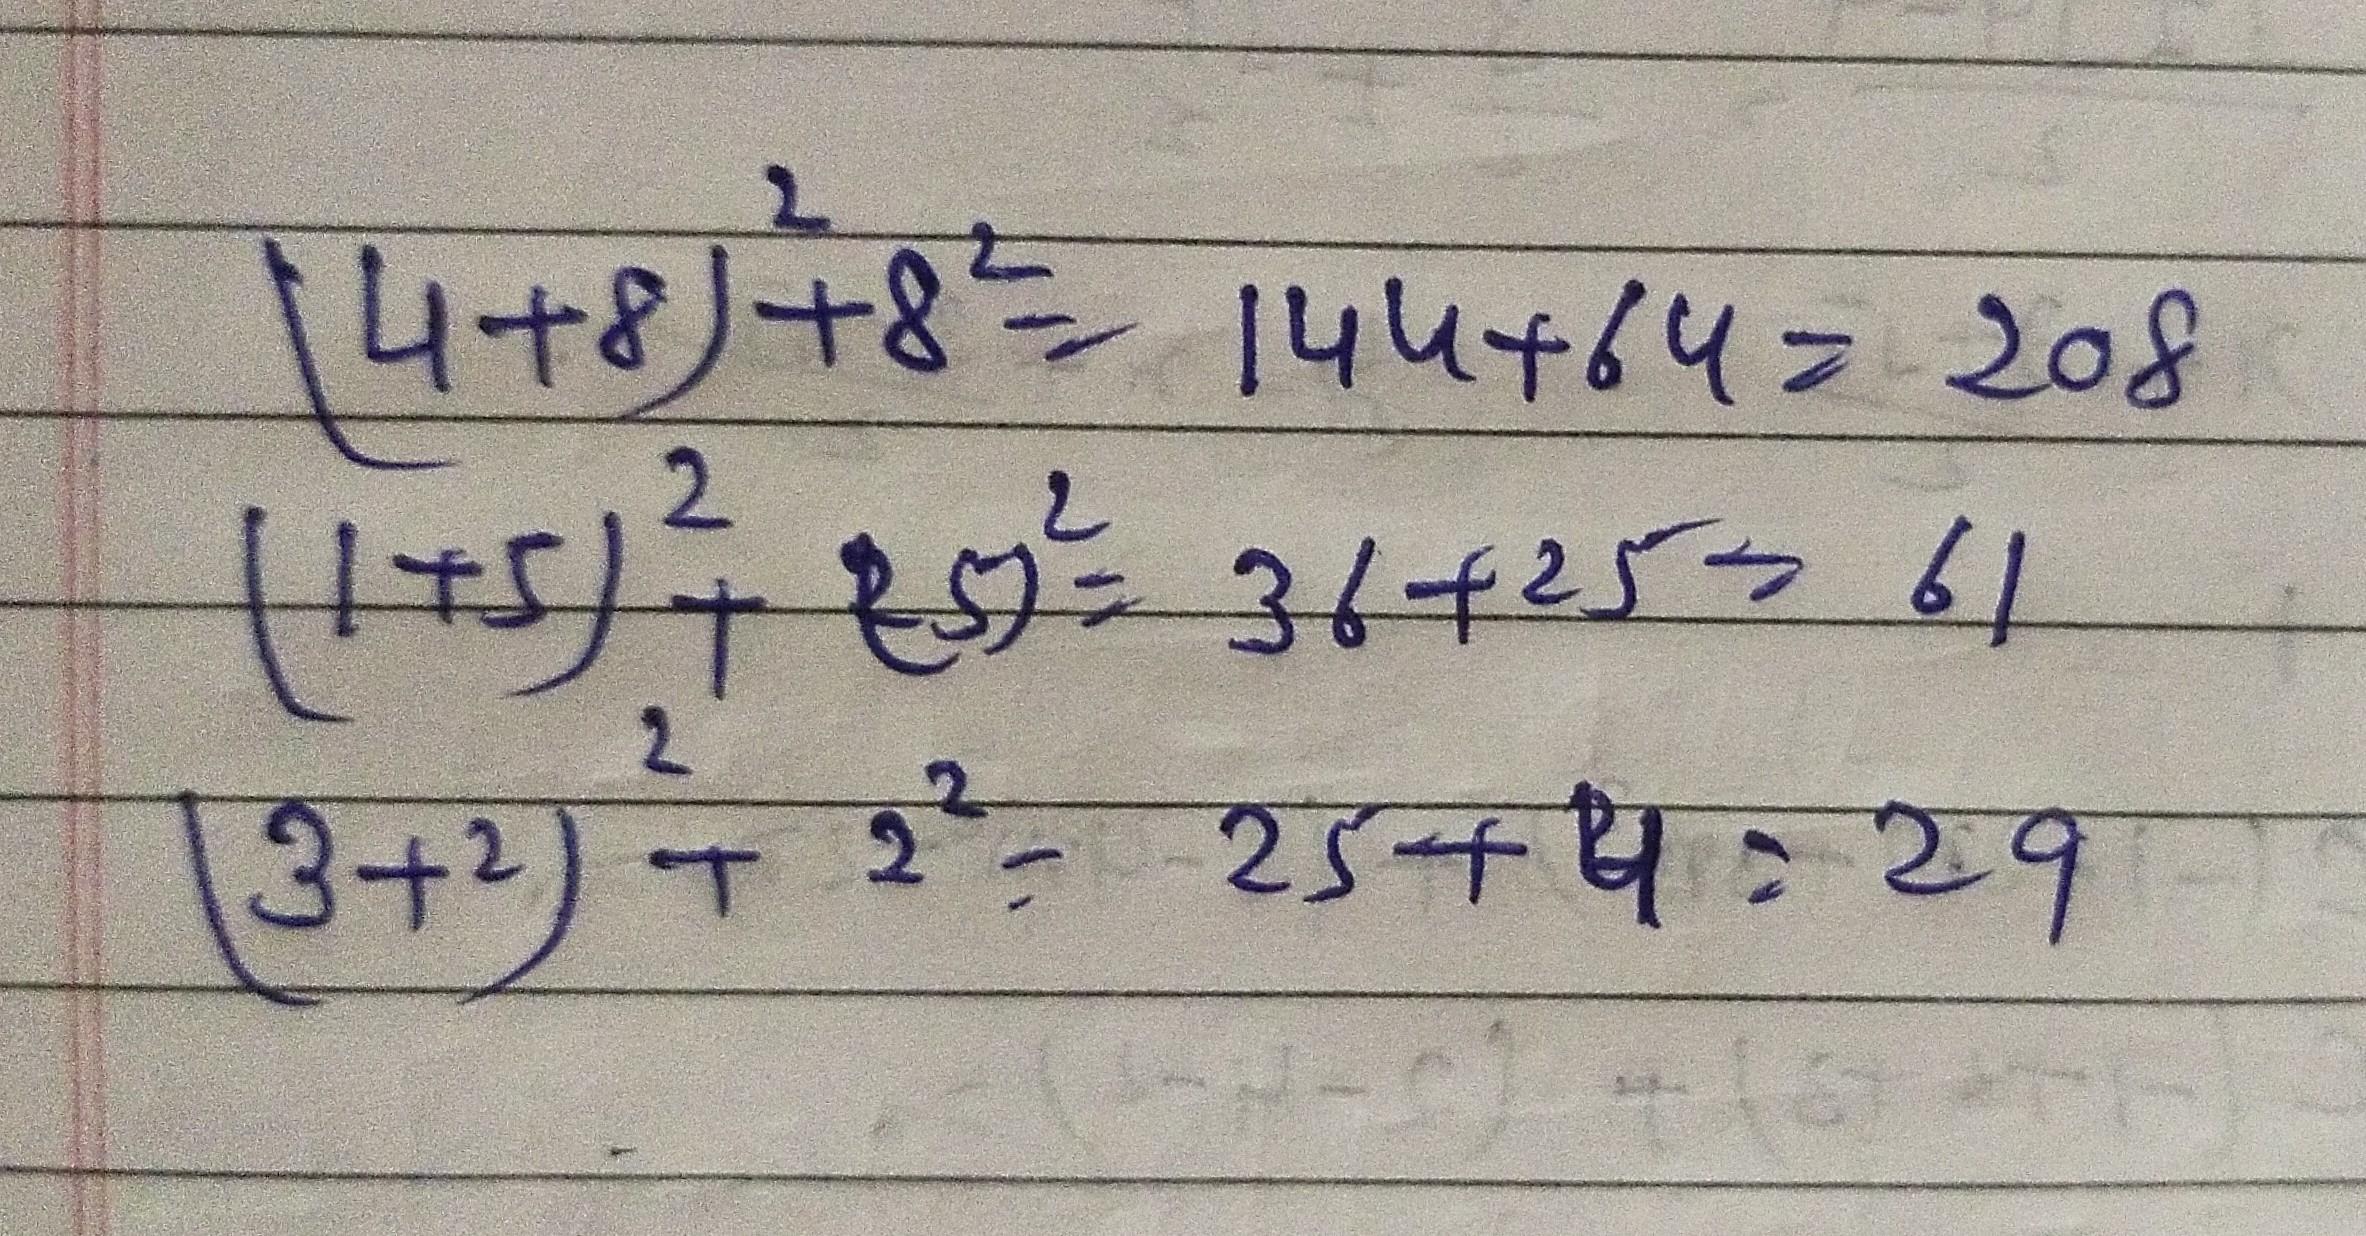 (4+8)²+8² = 144+64 = 208
(1+5)² + (5)² = 36+25 = 61
(3+2)² + 2² = 25+4 = 29